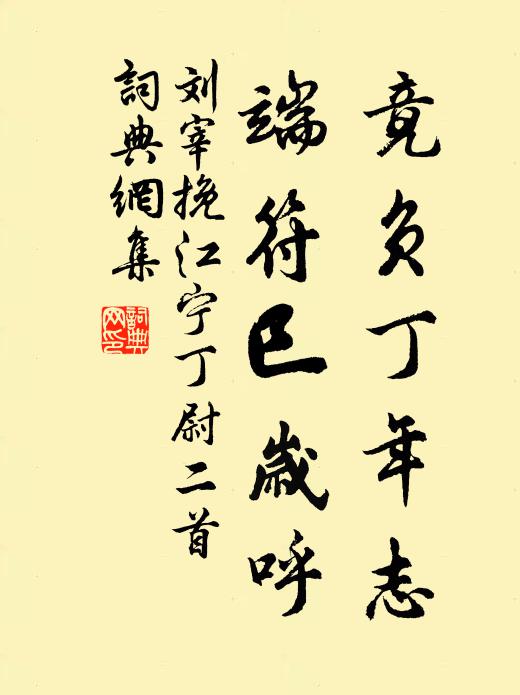 竟负丁年志
端符巳歲呼
刘宰挽江宁丁尉二首
詞典網集
詞典网印